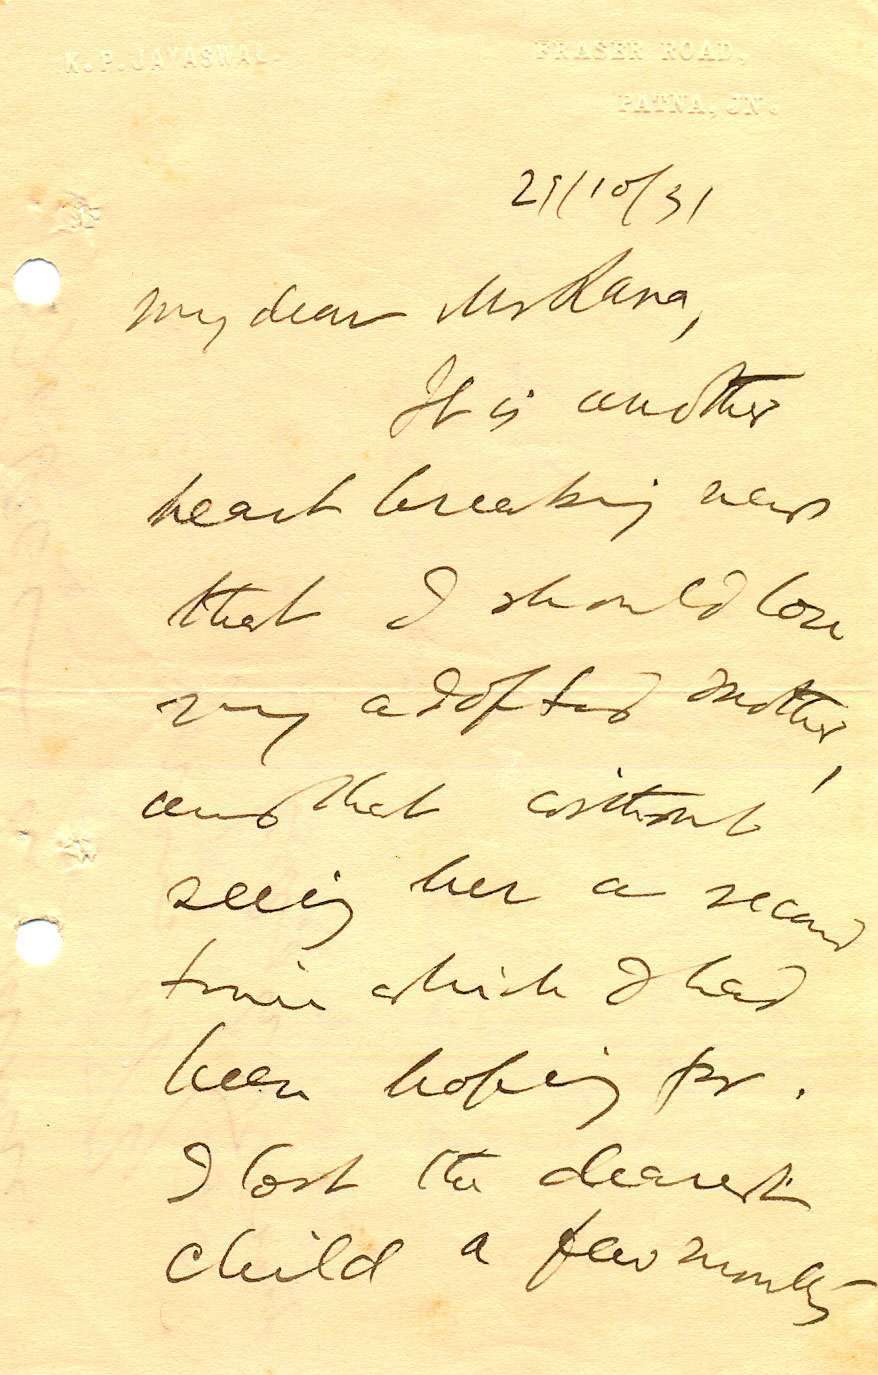 K. P. JAYASWAL.
FRASER ROAD,
PATNA, JN.
29/10/31
My dear Mr Rana,
It is another
heart breaking news
that I should lose
my adopted mother,
and that without
seeing her a second
time which I had
been hoping for.
I lost the dearest
child a few months